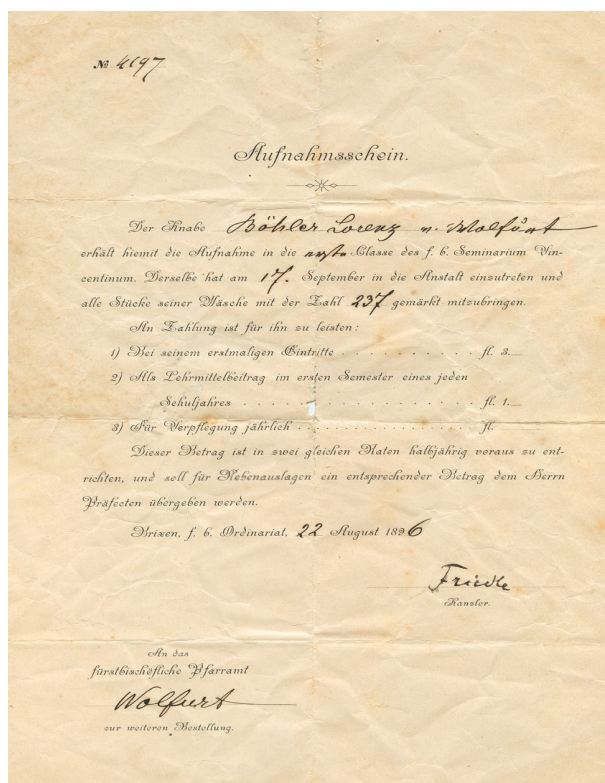 № 4197
Aufnahmsschein.
Der Knabe Böhler Lorenz v. Wolfurt
erhält hiemit die Aufnahme in die erste Classe des f. b. Seminarium Vin-
centinum. Derselbe hat am 17. September in die Anstalt einzutreten und
alle Stücke seiner Wäsche mit der Zahl 237 gemärkt mitzubringen.
An Zahlung ist für ihn zu leisten:
1) Bei seinem erstmaligen Eintritte . . . . . . . . . . . fl. 3.
2) Als Lehrmittelbeitrag im ersten Semester eines jeden
Schuljahres . . . . . . . . . . . . . . . . . . . fl. 1.
3) Für Verpflegung jährlich . . . . . . . . . . . . . . fl.
Dieser Betrag ist in zwei gleichen Raten halbjährig voraus zu ent-
richten, und soll für Nebenauslagen ein entsprechender Betrag dem Herrn
Präfecten übergeben werden.
Brixen, f. b. Ordinariat, 22 August 1896
Kanzler.
An das
fürstbischöfliche Pfarramt
Wolfurt
zur weiteren Bestellung.